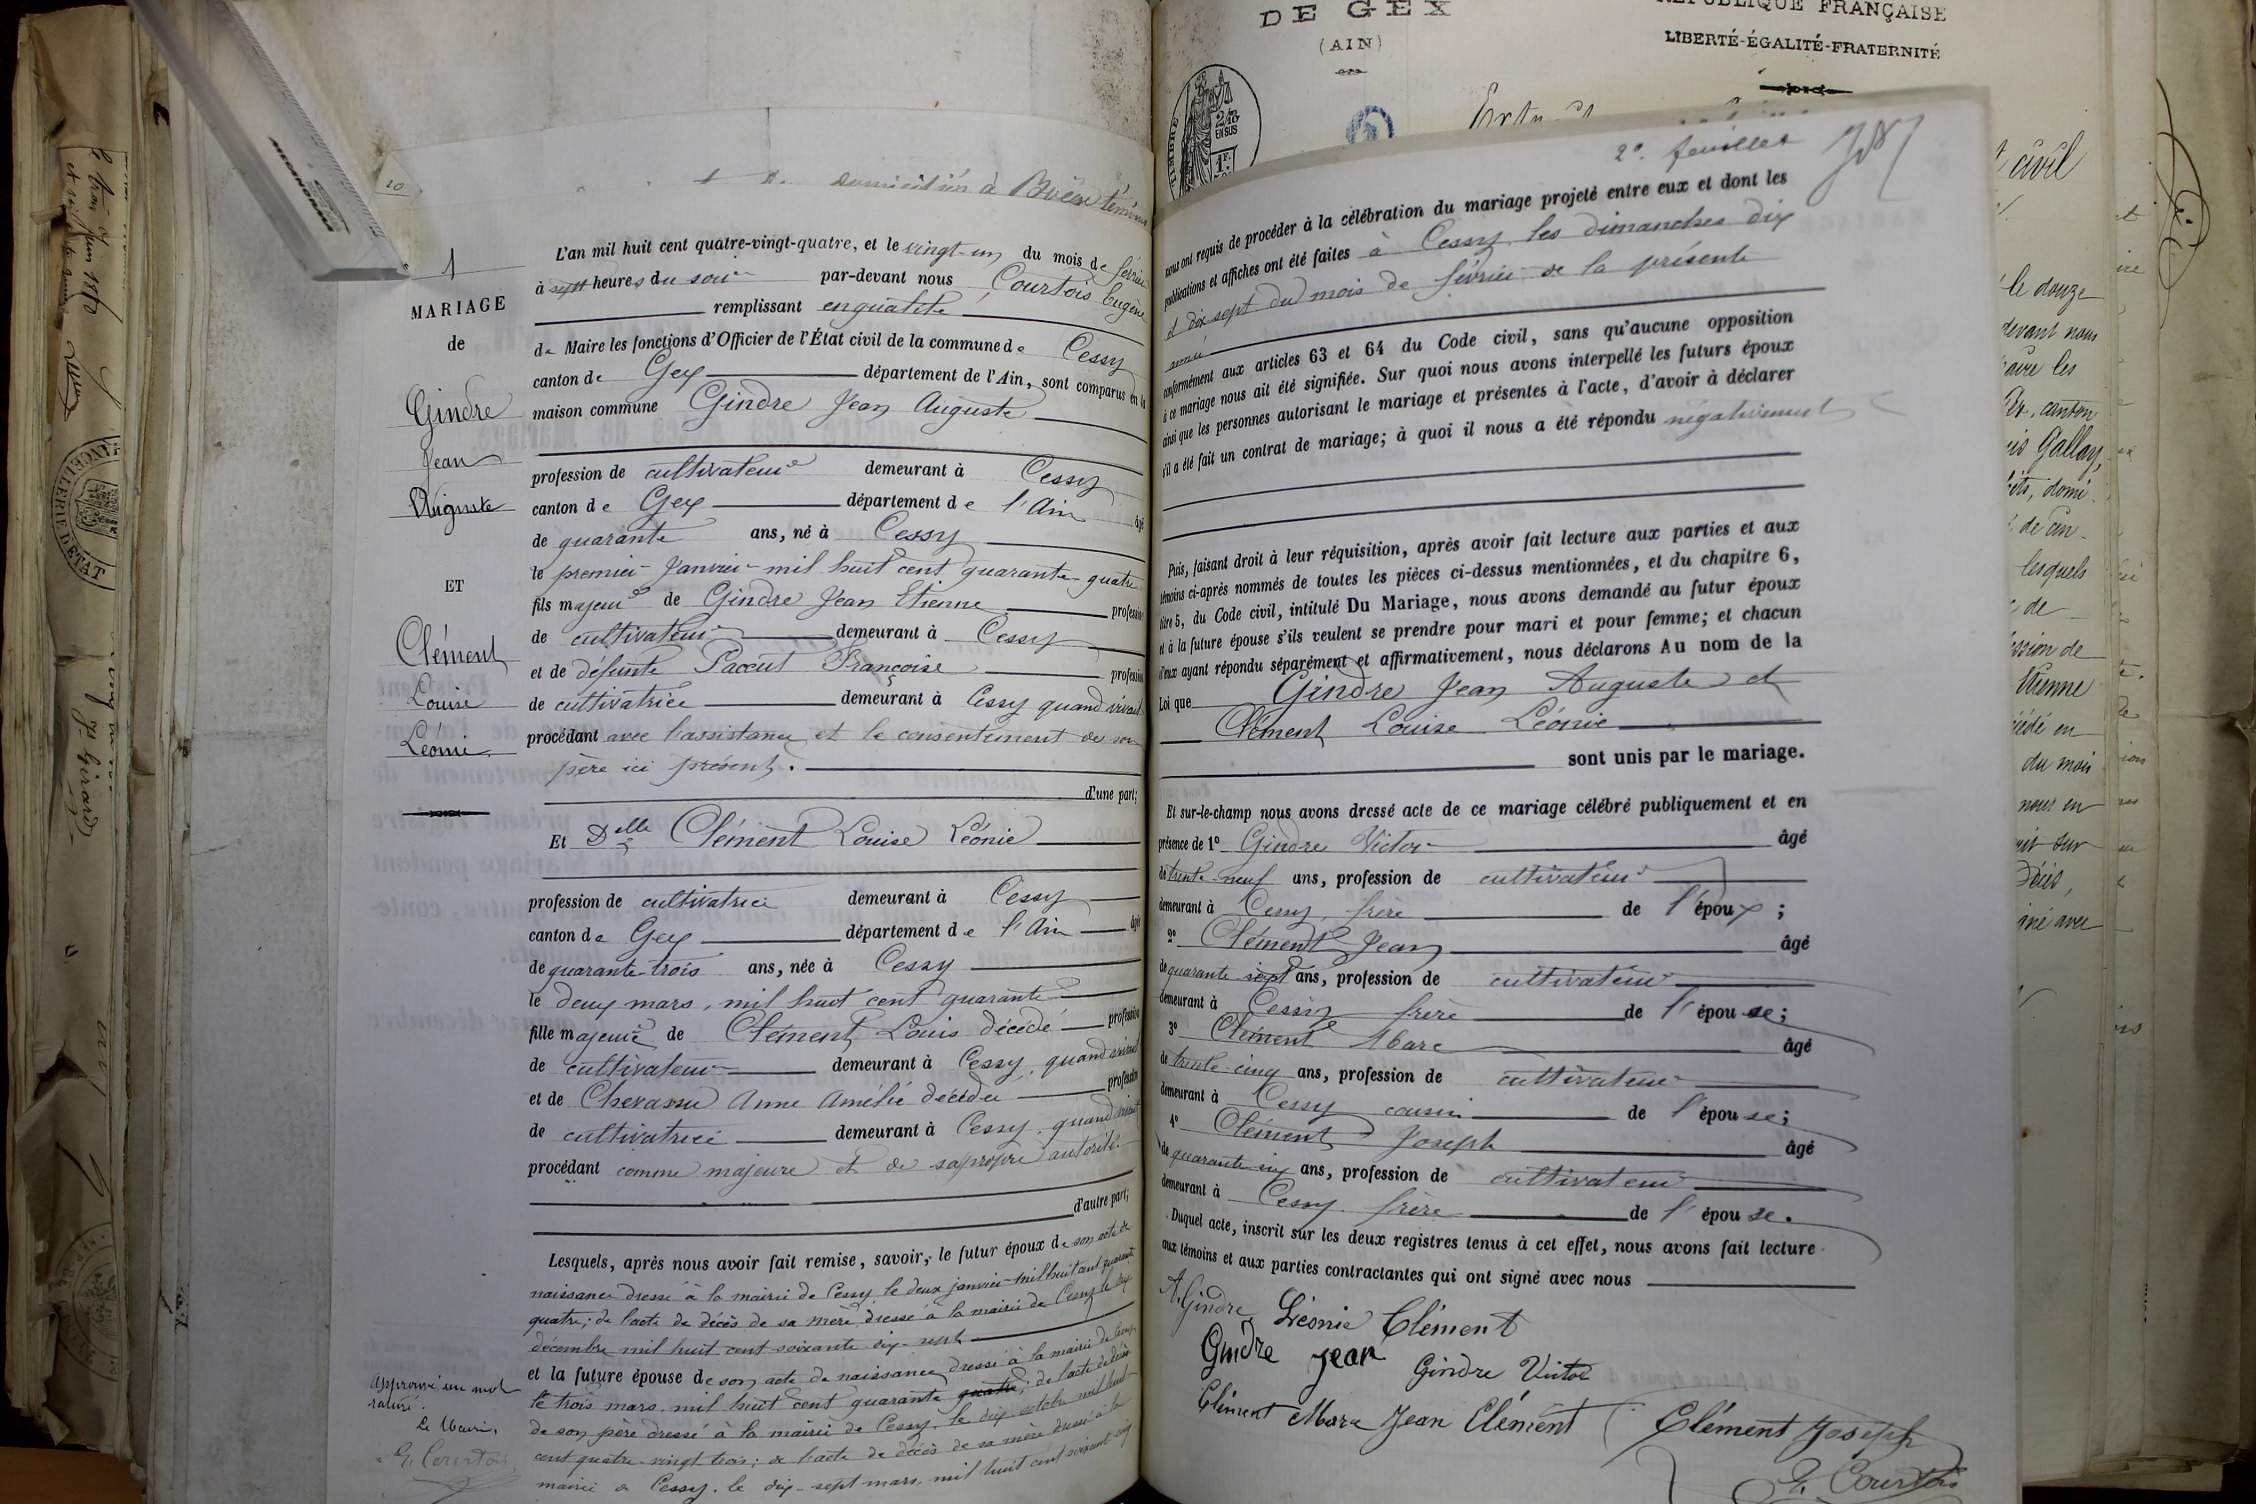 10
domiciliés à
1
MARIAGE
de
Gindre
Jean
Auguste
ET
Clément
Louise
Léonie
L'an mil huit cent quatre-vingt-quatre, et le vingt-un du mois de février
à sept heures du soir par-devant nous Courtois Eugène
remplissant en qualité
de Maire les fonctions d'Officier de l'État civil de la commune de Cessy
canton de Gex département de l'Ain, sont comparus en la
maison commune Gindre Jean Auguste
profession de cultivateur demeurant à Cessy
canton de Gex département de l'Ain âgé
de quarante ans, né à Cessy
le premier Janvier mil huit cent quarante-quatre
fils majeur de Gindre Jean Etienne profession
de cultivateur demeurant à Cessy
et de défunte Paccut Françoise profession
de cultivatrice demeurant à Cessy quand vivait
procédant avec l'assistance et le consentement de son
père ici présent.
d'une part;
Et Delle Clément Louise Léonie
profession de cultivatrice demeurant à Cessy
canton de Gex département de l'Ain âgée
de quarante-trois ans, née à Cessy
le deux mars, mil huit cent quarante
fille majeure de Clément Louis décédé profession
de cultivateur demeurant à Cessy, quand vivait
et de Chevassu Anne Amélie décédée profession
de cultivatrice demeurant à Cessy, quand vivait
procédant comme majeure et de sa propre autorité.
d'autre part;
Lesquels, après nous avoir fait remise, savoir, le futur époux de son acte de
naissance dressé à la mairie de Cessy le deux janvier mil huit cent quarante
quatre; de l'acte de décès de sa mère dressé à la mairie de Cessy le six
décembre mil huit cent soixante dix-sept
et la future épouse de son acte de naissance dressé à la mairie de Cessy
le trois mars mil huit cent quarante quatre; de l'acte de décès
de son père dressé à la mairie de Cessy, le dix octobre mil huit
cent quatre-vingt trois; de l'acte de décès de sa mère dressé à la
mairie de Cessy, le dix-sept mars, mil huit cent soixante cinq
Approuvé un mot
raturé.
Le Maire,
E. Courtois
DE GEX
(AIN)
RÉPUBLIQUE FRANÇAISE
LIBERTÉ-ÉGALITÉ-FRATERNITÉ
2e feuillet
nous ont requis de procéder à la célébration du mariage projeté entre eux et dont les
publications et affiches ont été faites à Cessy les dimanches dix
et dix sept du mois de février de la présente
année
conformément aux articles 63 et 64 du Code civil, sans qu'aucune opposition
à ce mariage nous ait été signifiée. Sur quoi nous avons interpellé les futurs époux
ainsi que les personnes autorisant le mariage et présentes à l'acte, d'avoir à déclarer
s'il a été fait un contrat de mariage; à quoi il nous a été répondu négativement
Puis, faisant droit à leur réquisition, après avoir fait lecture aux parties et aux
témoins ci-après nommés de toutes les pièces ci-dessus mentionnées, et du chapitre 6,
titre 5, du Code civil, intitulé Du Mariage, nous avons demandé au futur époux
et à la future épouse s'ils veulent se prendre pour mari et pour femme; et chacun
d'eux ayant répondu séparément et affirmativement, nous déclarons Au nom de la
Loi que Gindre Jean Auguste et
Clément Louise Léonie
sont unis par le mariage.
Et sur-le-champ nous avons dressé acte de ce mariage célébré publiquement et en
présence de 1º Gindre Victor âgé
de trente-neuf ans, profession de cultivateur
demeurant à Cessy, frère de l'époux;
2º Clément Jean âgé
de quarante sept ans, profession de cultivateur
demeurant à Cessy frère de l'épouse;
3º Clément Marc âgé
de trente-cinq ans, profession de cultivateur
demeurant à Cessy cousin de l'épouse;
4º Clément Joseph âgé
de quarante six ans, profession de cultivateur
demeurant à Cessy. frère de l'épouse.
Duquel acte, inscrit sur les deux registres tenus à cet effet, nous avons fait lecture
aux témoins et aux parties contractantes qui ont signé avec nous
A. Gindre Léonie Clément
Gindre Jean Gindre Victor
Clément Marc Jean Clément Clément Joseph
E. Courtois
civil
le douze
devant nous
canton
Gallay,
domi-
lesquels
de
Etienne
du mois